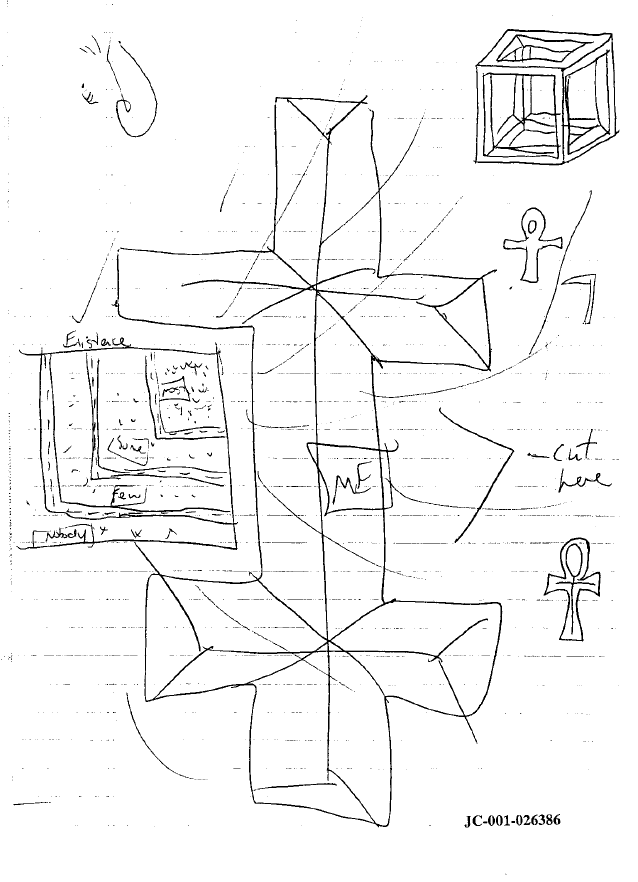 Existence
most
Some
ME
cut
here
Few
Nobody
JC-001-026386